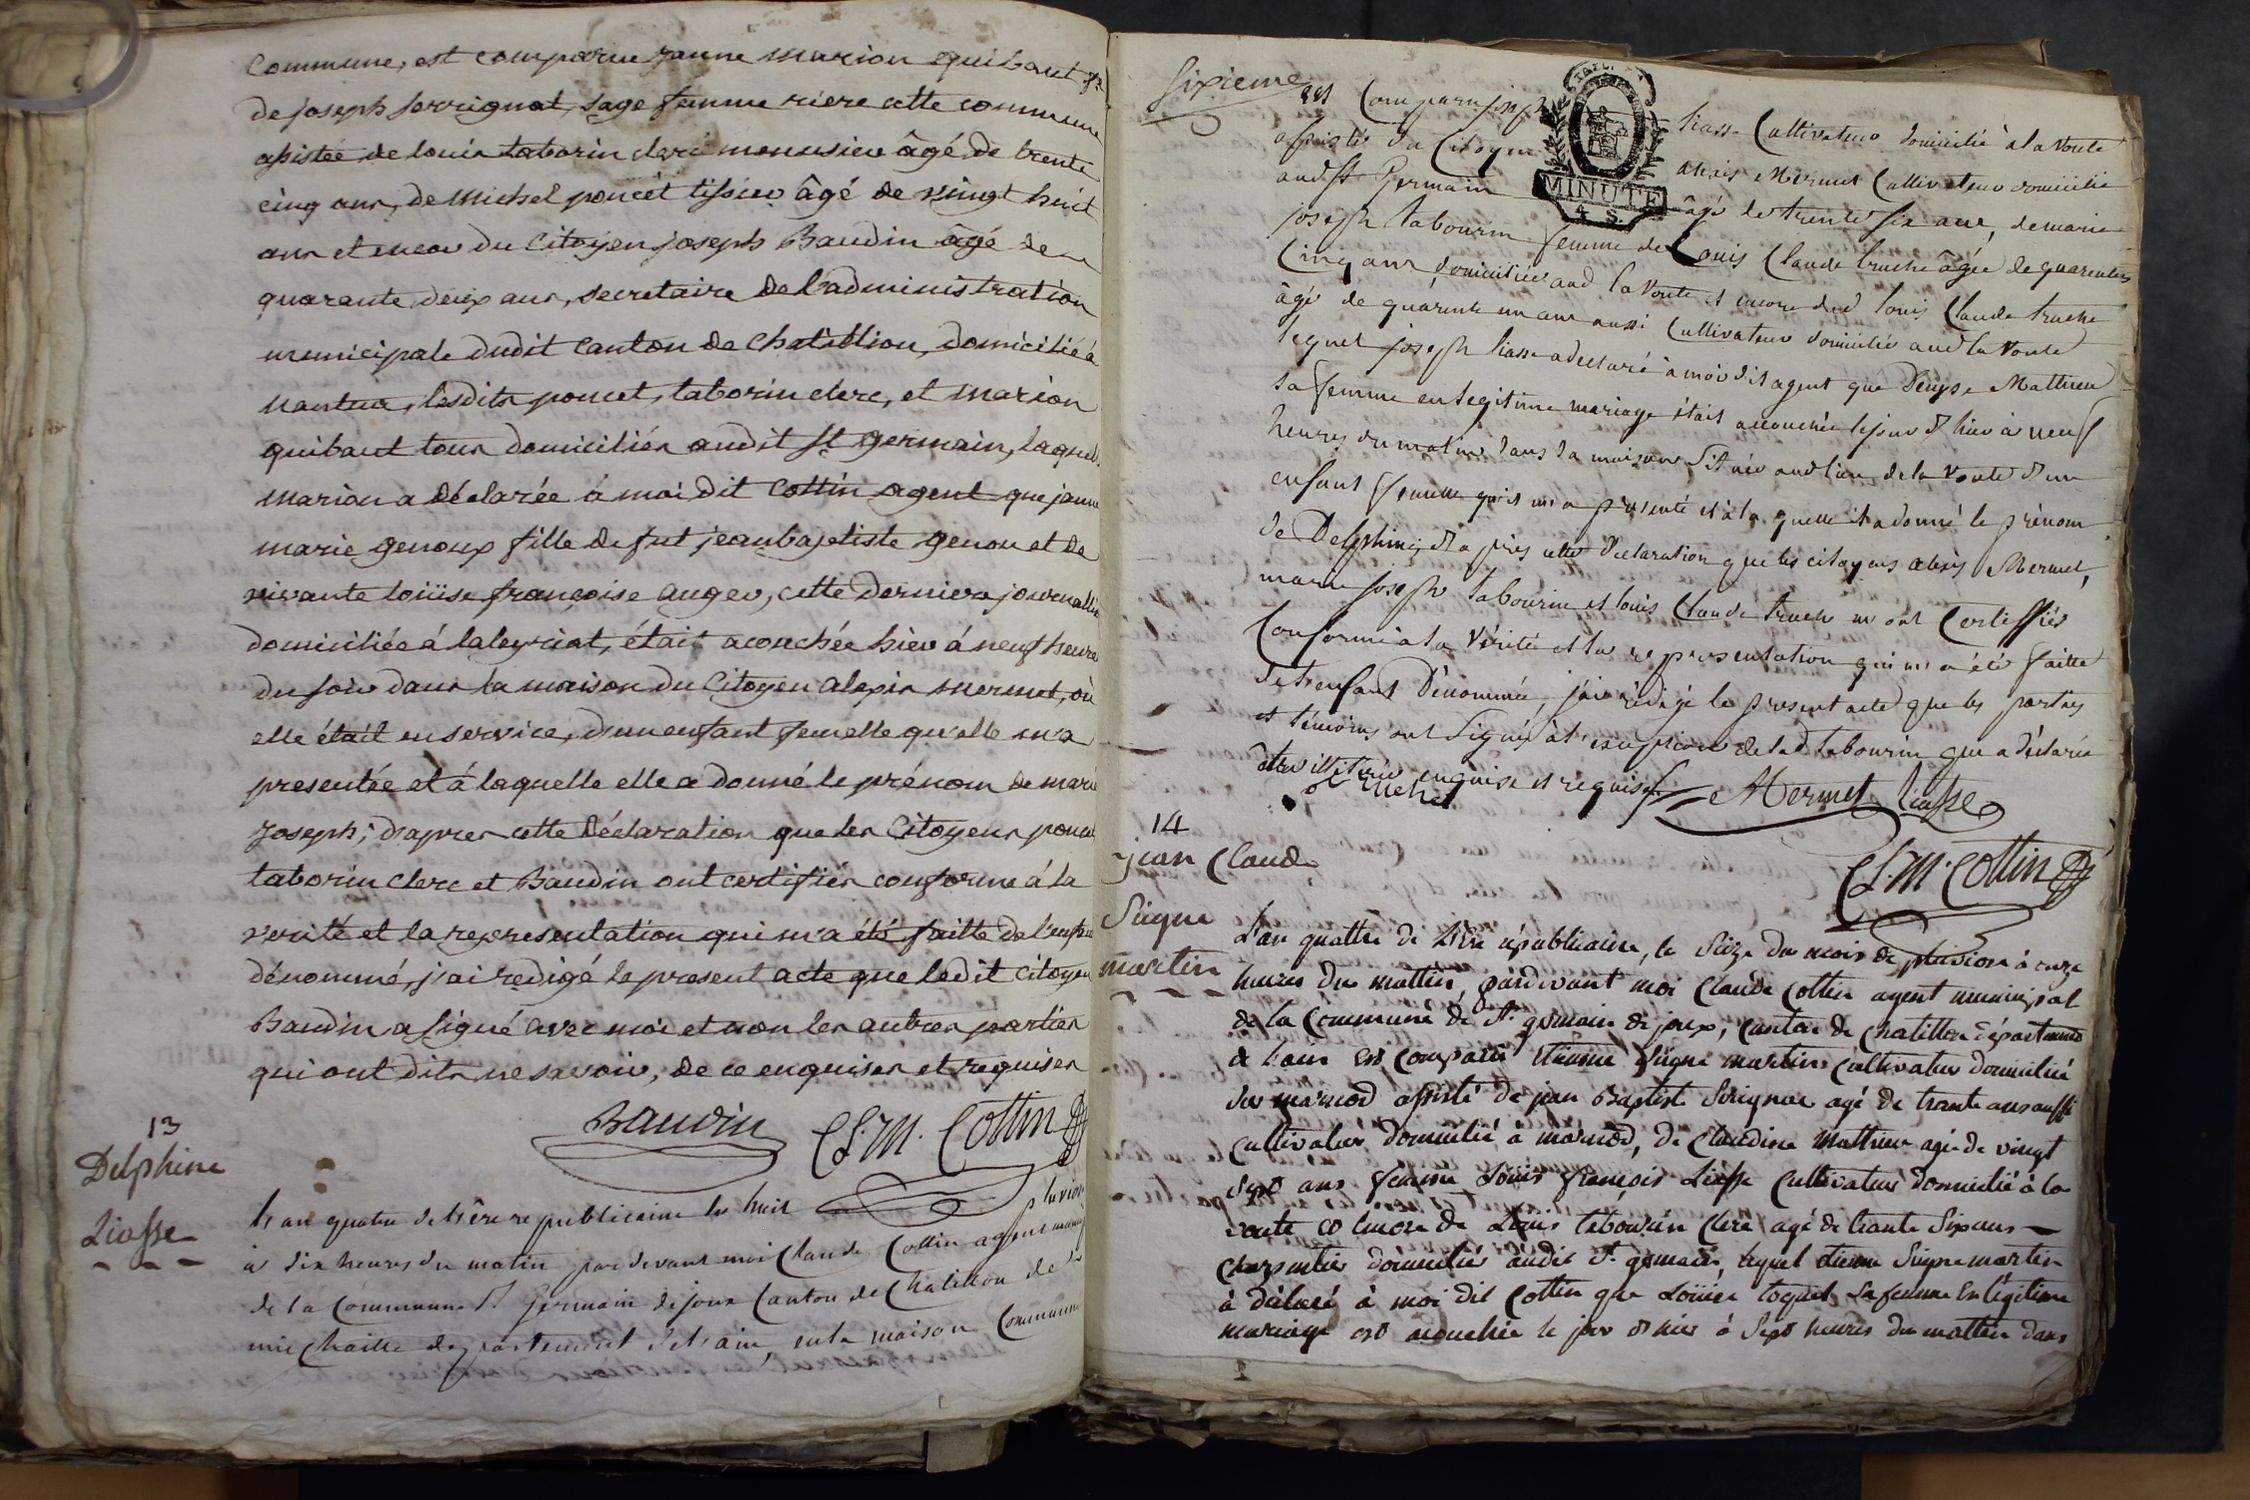 commune, est comparue jeanne marion quibaut f^e
de joseph serrignat, sage femme riere cette commune
assistée de louis taborin clerc menusieu âgé de trente
cinq ans, de Michel poncét tissieu âgé de vingt huit
ans et encor du Citoyen joseph Baudin âgé de
quarante deux ans, secretaire de l'administration
municipale dudit canton de Chatillion, domicilié à
nantua, lesdits poncet, taborin clerc, et marion
quibaut tous domiciliés audit St germain, laquelle
marion a déclarée á moi dit Cottin agent que jeanne
marie genoux fille de fut jeanbaptiste genou et de
vivante loüise françoise auger, cette derniere journallire
domiciliée á laleyriat, était acouchée hier á neuf heure
du soir dans la maison du Citoyen alexis mermet, où
elle était en service, d'un enfant femelle qu'elle m'a
presentée et á laquelle elle a donné le prénom de marie
Joseph; d'apres cette déclaration que les Citoyens poncet
taborin clerc et Baudin ont certifiés conforme á la
verité et la representation qui m'a été faitte de l'enfant
dénommé, j'ai redigé le present acte que ledit citoyen
Baudin a signé avec moi et non les autres parties
qui ont dits ne savoir, de ce enquises et requises
Baudin Cl. M. Cottin
13
Delphine
Liasse
L'an quatre de l'êre republicaine le huit pluviose
à dix heures du matin par devant moi Claude Cottin agent munipl
de la Commune St germain de joux Canton de Chatillon de
michaille departement de l'ain, en la maison Commune
Sixieme
est Comparu joseph liasse Cultivateur domicilié à la Voute
assisté du Citoyen alexis Mermet Cultivateur domicilié
aud St Germain âgé de trente six ans, de marie
joseph tabourin femme de Louis Claude truche âgée de quarente
Cinq ans domiciliée aud la Voute et encore dud louis Claude truche
âgé de quarente un ans aussi Cultivateur domicilié aud la Voute
lequel joseph liasse a declaré à moi dit agent que Denyse Mathieu
sa femme en legitime mariage était accouchée le jour d'hier à neuf
heures du matin dans sa maison située aud lieu de la Voute d'un
enfant femelle qu'il m'a présenté et à la quelle il a donné le prénom
de Delphine, d'a près cette declaration que les citoyens alexis Mermet,
marie joseph tabourin et louis Claude truche m'ont Certiffiés
Conforme à la Vérité et la representation qui m'a été faitte
de l'enfant dénommée, j'ai rédigé le present acte que les parties
et témoins ont signés à l'exception de lad tabourin que a déclarée
être illitérée enquise et requise
truche Mermet Liasse
Cl. M. Cottin
14
jean Claude
Suque
martin
L'an quattre de L'ere republicaine, le seize du mois de pluviose à onze
heures du mattin, pardevant moi Claude Cottin agent municipal
de la Commune de St germain de joux, Canton de Chatillon département
de l'ain est Comparu étienne Suque martin Cultivateur domicilié
sur marnod assisté de jean Baptiste Serignat agé de trante ans aussi
Cultivateur domicilié à marnod, de Claudine Mathieu agé de vingt
sept ans femme Louis françois Liasse Cultivateur domicilié à la
voute et encore de Louis tabourin Clerc agé de trante six ans
charpentier domicilié audit St germain, lequel étienne Suque martin
à déclaré à moi dit Cottin que Loüise toquet sa femme en légitime
mariage est acouchée le jour d'hier à sept heures du mattin dans
MINUTE
4 S.